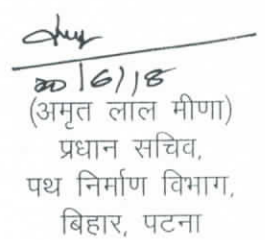 20/6/18
(अमृत लाल मीणा)
प्रधान सचिव,
पथ निर्माण विभाग,
बिहार, पटना